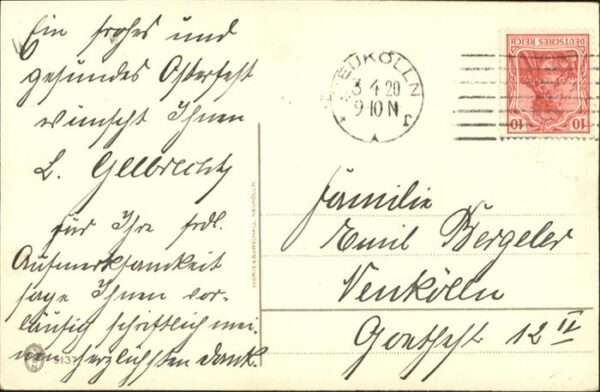 Ein frohes und
gesundes Osterfest
wünscht Ihnen
L. Gellbrecht
für Ihre frdl.
Aufmerksamkeit
sage Ihnen vor-
läufig schriftlich mei-
nen herzlichsten Dank.
NEUKÖLLN
3 4 20
9-10 N
* r
DEUTSCHES REICH
10 10
Familie
Emil Bergeler
Neukölln
Goethestr 12 II